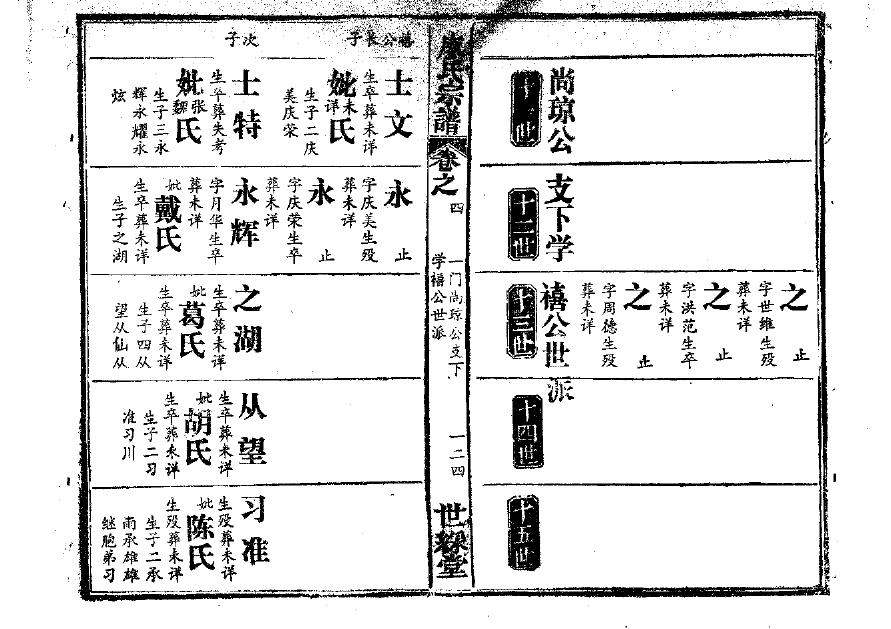 尚琼公支下学禧公世派
十一世
十二世
十三世
十四世
十五世
之 止
字世维生殁
葬未详
之 止
字洪范生卒
葬未详
之 止
字周德生殁
葬未详
廖氏宗譜
卷之四
一门尚琼公支下
学禧公世派
一二四
世綵堂
禧公长子
士文
生卒葬未详
妣未详氏
生子二庆
美庆荣
次子
士特
生卒葬失考
妣张魏氏
生子三永
辉永耀永
炫
永 止
字庆美生殁
葬未详
永 止
字庆荣生卒
葬未详
永辉
字月华生卒
葬未详
妣戴氏
生卒葬未详
生子之湖
之湖
生卒葬未详
妣葛氏
生卒葬未详
生子四从
望从仙从
从望
生卒葬未详
妣胡氏
生卒葬未详
生子二习
准习川
习准
生殁葬未详
妣陈氏
生殁葬未详
生子二承
南承雄雄
继胞弟习